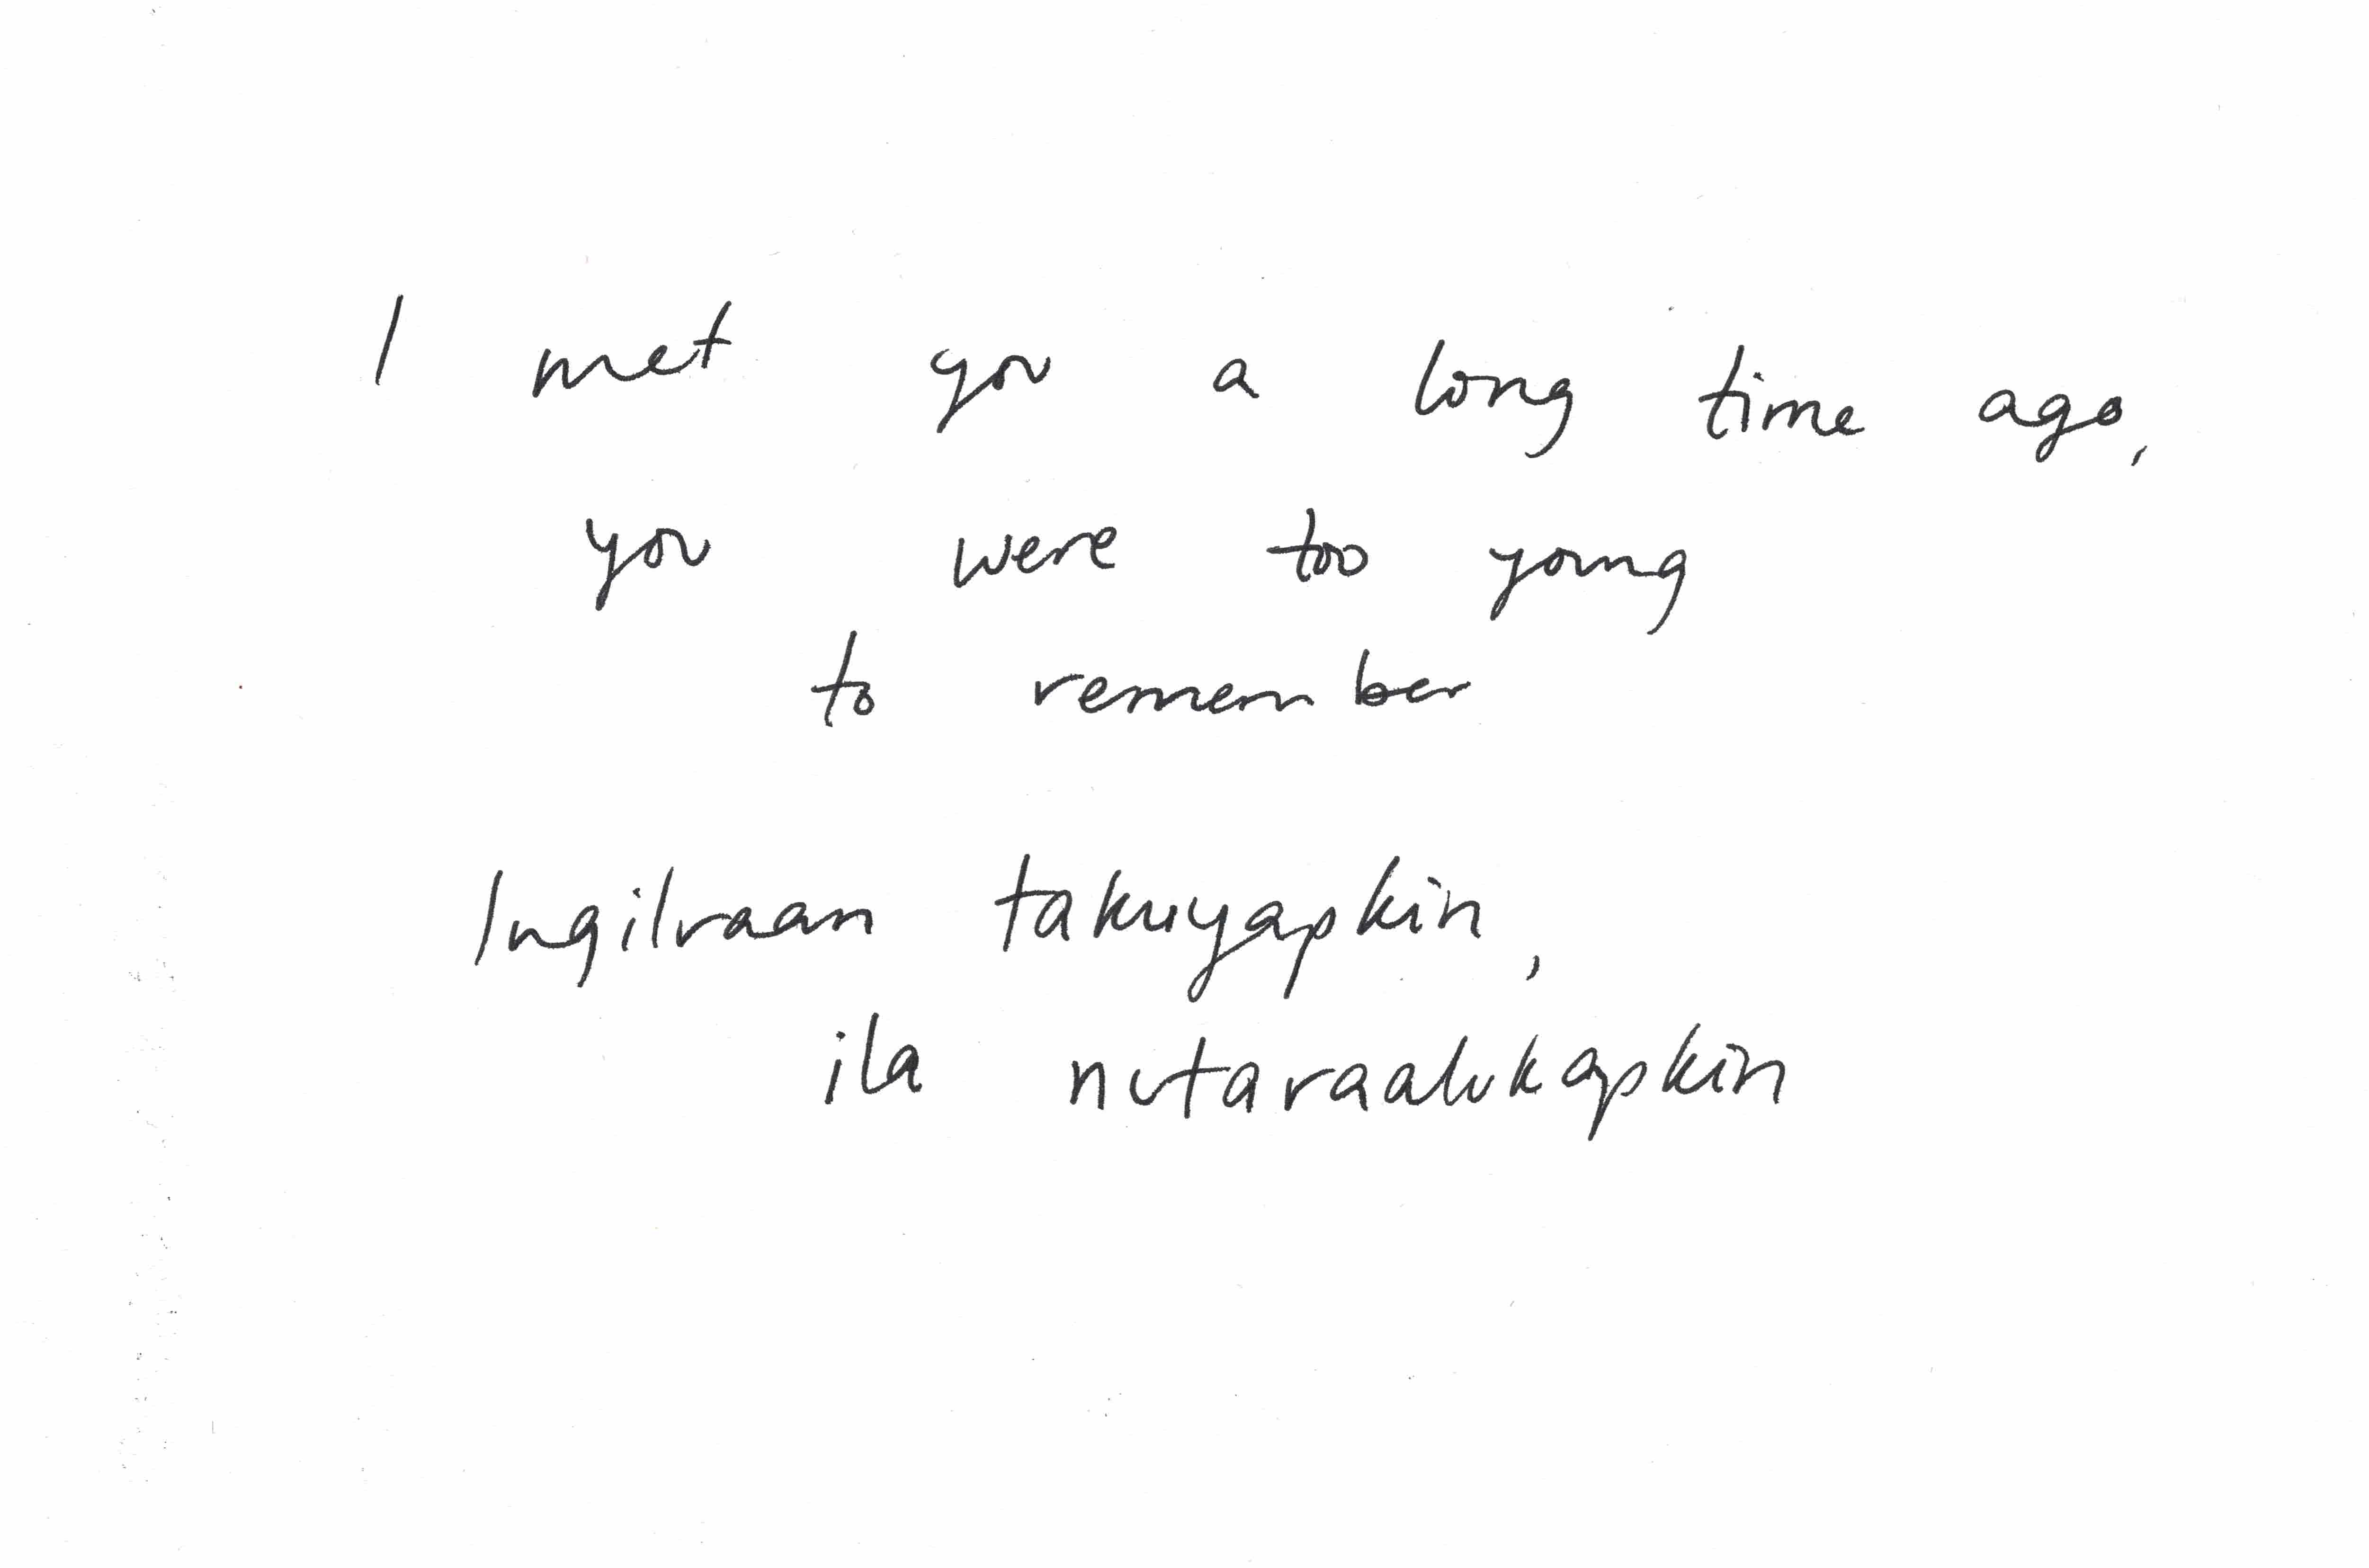 I met you a long time ago,
you were too young
to remember
Ingilraan takuyapkin,
ila nutaraalukapkin